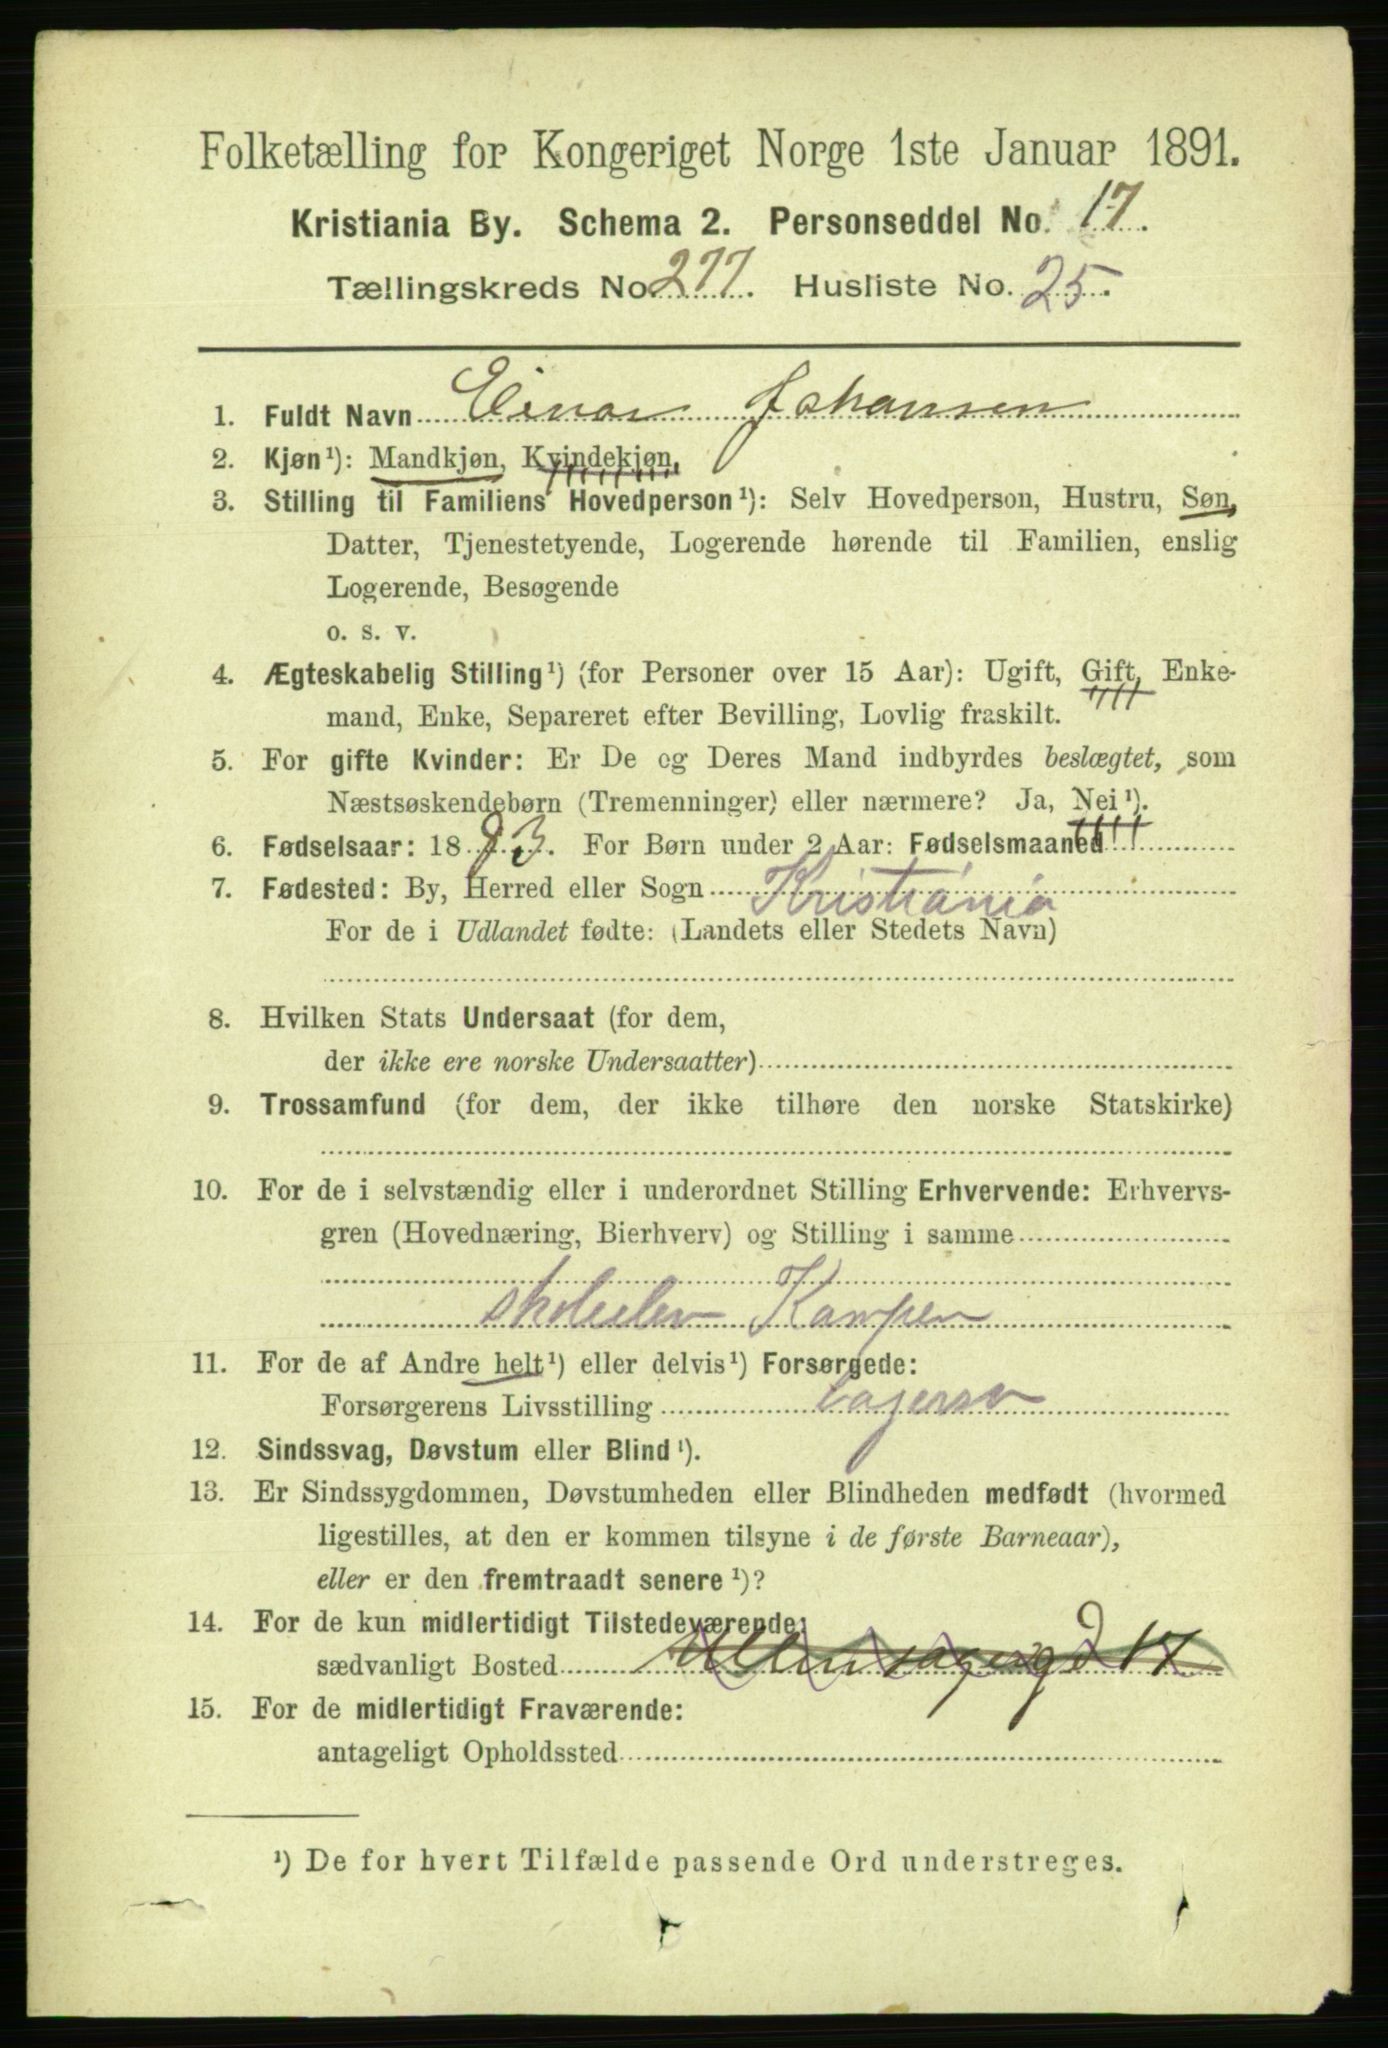 Folketælling for Kongeriget Norge 1ste Januar 1891.
Kristiania By. Schema 2. Personseddel No. 17.
Tællingskreds No. 277. Husliste No. 25.
1. Fuldt Navn Einar Johansen
2. Kjøn¹): Mandkjøn, Kvindekjøn,
3. Stilling til Familiens Hovedperson¹): Selv Hovedperson, Hustru, Søn,
Datter, Tjenestetyende, Logerende hørende til Familien, enslig
Logerende, Besøgende
o. s. v.
4. Ægteskabelig Stilling¹) (for Personer over 15 Aar): Ugift, Gift, Enke-
mand, Enke, Separeret efter Bevilling, Lovlig fraskilt.
5. For gifte Kvinder: Er De og Deres Mand indbyrdes beslægtet, som
Næstsøskendebørn (Tremenninger) eller nærmere? Ja, Nei¹).
6. Fødselsaar: 1883. For Børn under 2 Aar: Fødselsmaaned
7. Fødested: By, Herred eller Sogn Kristiania
For de i Udlandet fødte: (Landets eller Stedets Navn)
8. Hvilken Stats Undersaat (for dem,
der ikke ere norske Undersaatter)
9. Trossamfund (for dem, der ikke tilhøre den norske Statskirke)
10. For de i selvstændig eller i underordnet Stilling Erhvervende: Erhvervs-
gren (Hovednæring, Bierhverv) og Stilling i samme
skoleelev Kampen
11. For de af Andre helt¹) eller delvis¹) Forsørgede:
Forsørgerens Livsstilling
12. Sindssvag, Døvstum eller Blind¹).
13. Er Sindssygdommen, Døvstumheden eller Blindheden medfødt (hvormed
ligestilles, at den er kommen tilsyne i de første Barneaar),
eller er den fremtraadt senere¹)?
14. For de kun midlertidigt Tilstedeværende:
sædvanligt Bosted 17
15. For de midlertidigt Fraværende:
antageligt Opholdssted
¹) De for hvert Tilfælde passende Ord understreges.